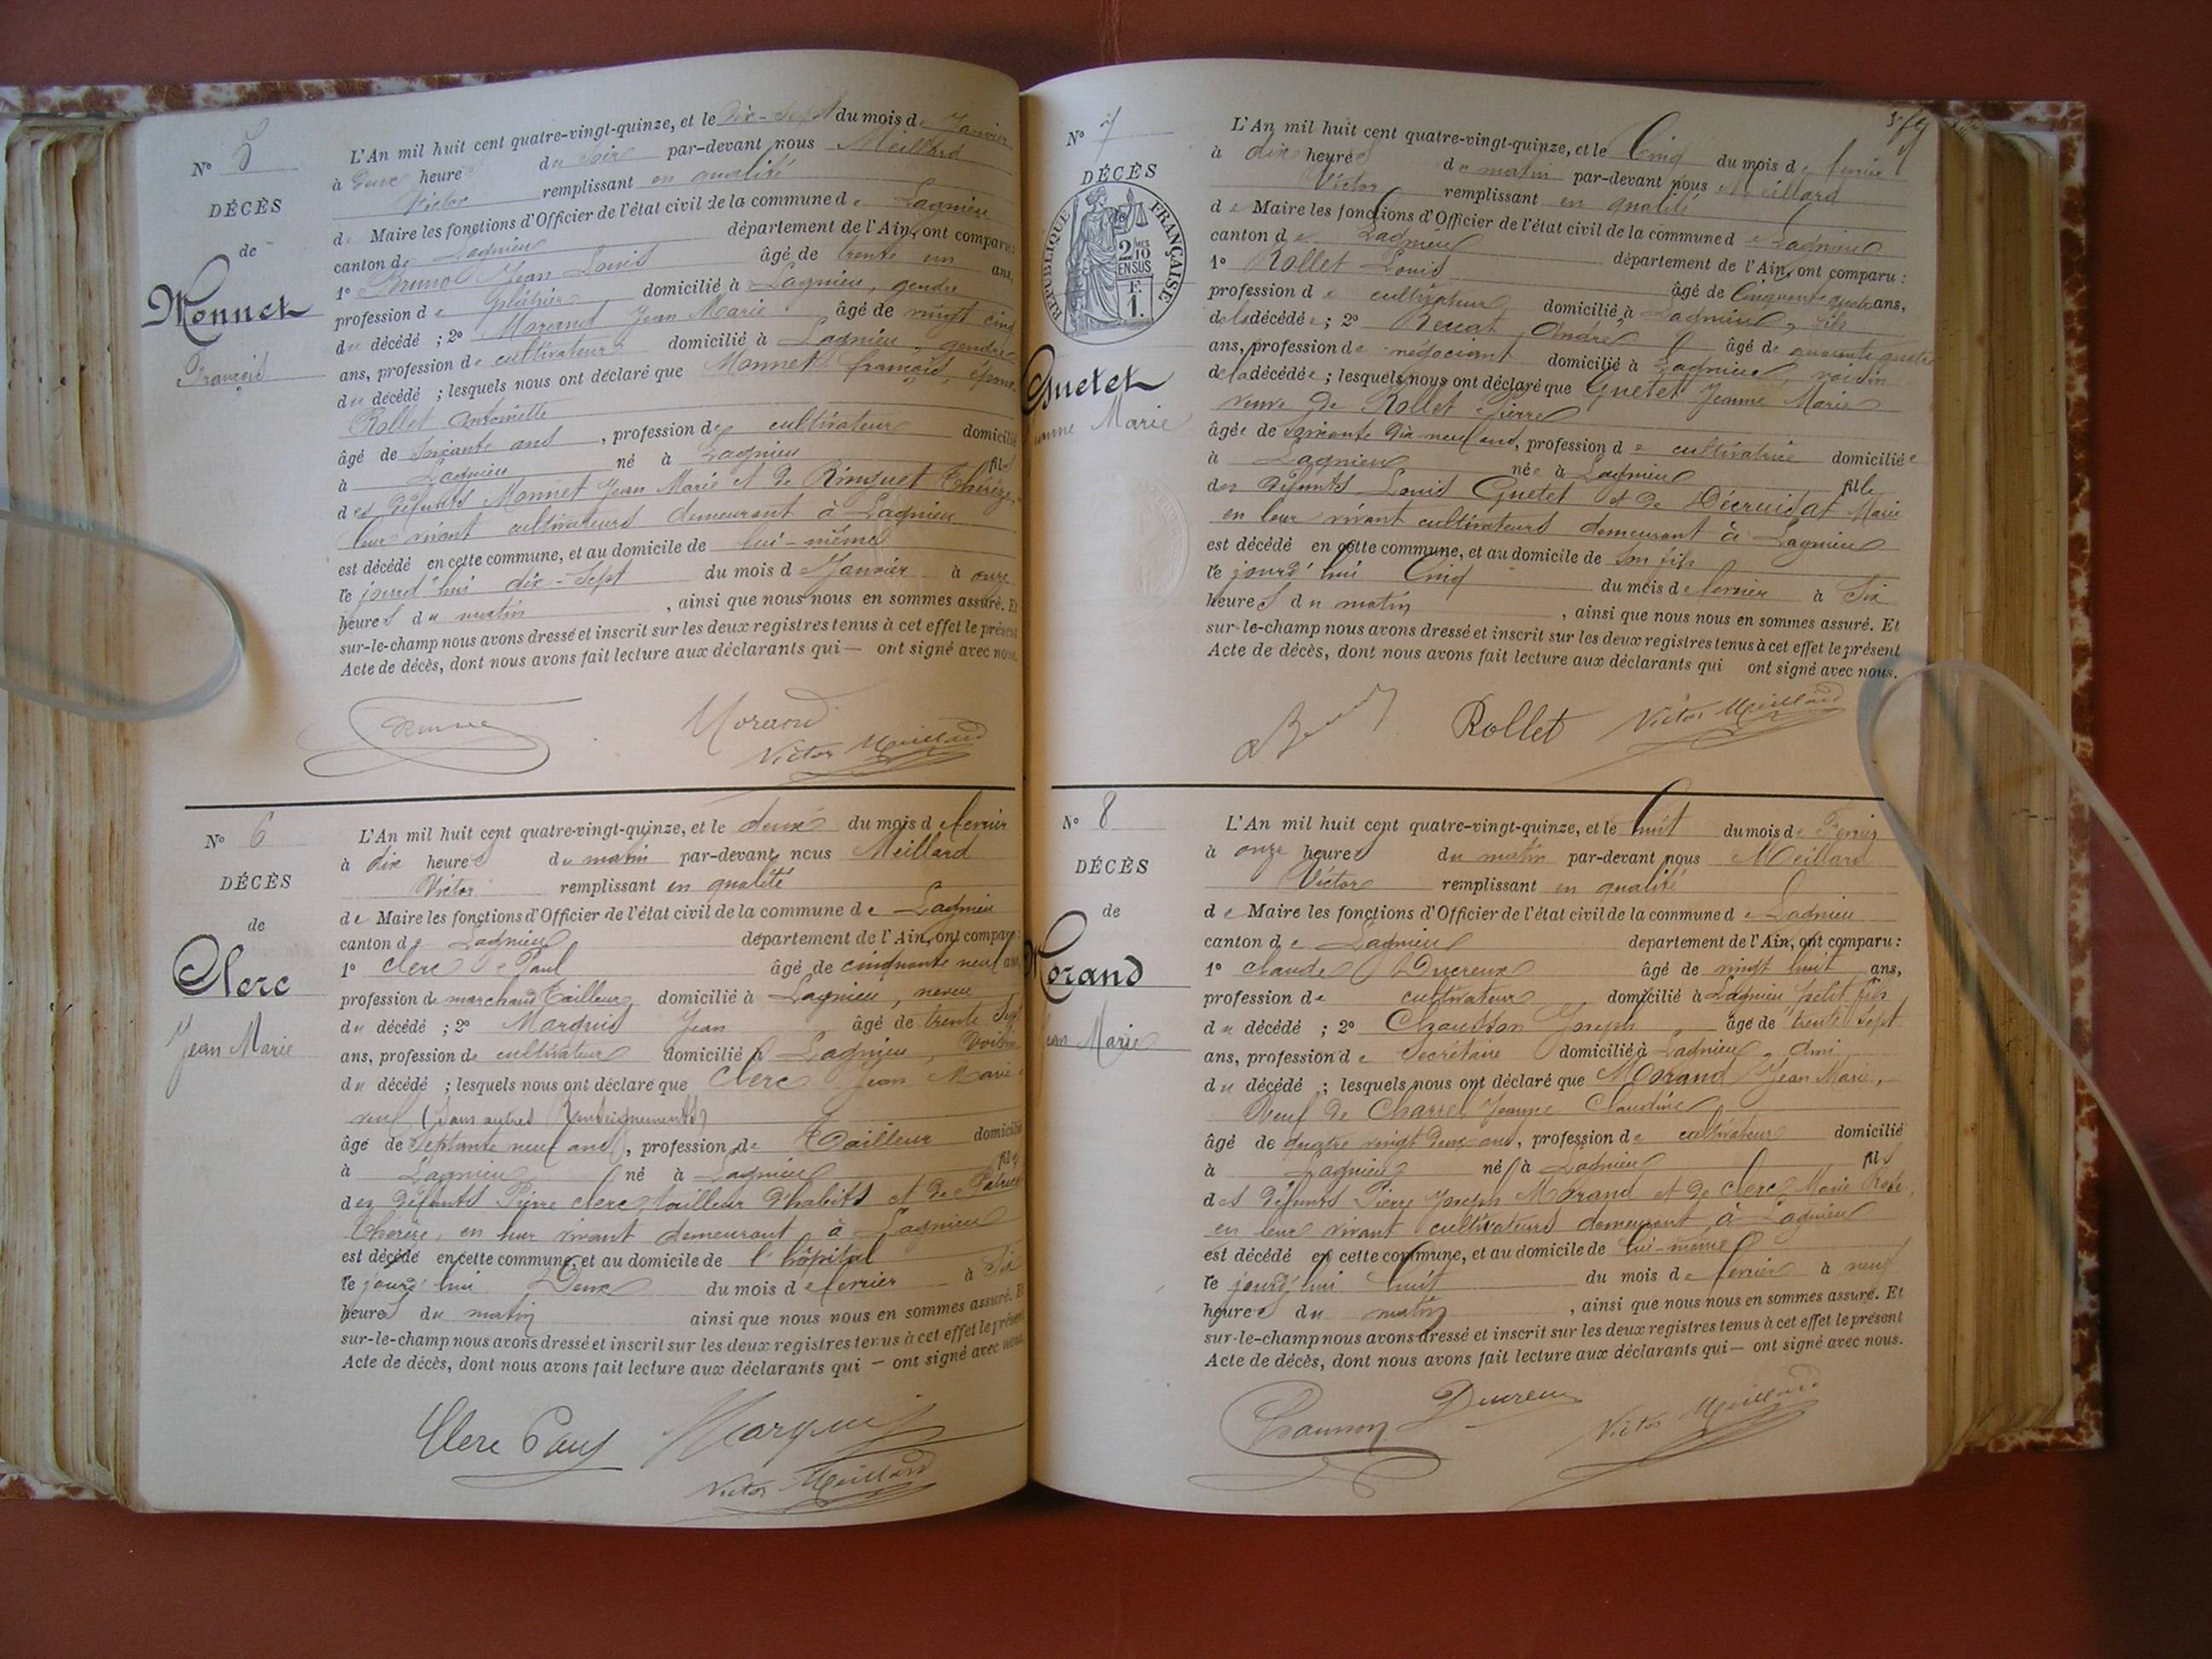 N° 5
DÉCÈS
de
Monnet
François
L'An mil huit cent quatre-vingt-quinze, et le dix-sept du mois de Janvier
à deux heures du soir par-devant nous Meillard
Victor remplissant en qualité
de Maire les fonctions d'Officier de l'état civil de la commune de Lagnieu
canton de Lagnieu département de l'Ain, ont comparu :
1° Brunot Jean Louis âgé de trente un ans,
profession de plâtrier domicilié à Lagnieu, gendre
du décédé ; 2° Morand Jean Marie âgé de vingt cinq
ans, profession de cultivateur domicilié à Lagnieu, gendre
du décédé ; lesquels nous ont déclaré que Monnet françois, époux
Rollet Antoinette
âgé de soixante ans, profession de cultivateur domicilié
à Lagnieu né à Lagnieu fils
des défunts Monnet Jean Marie et de Ringuet Thérèze,
leur vivant cultivateurs demeurant à Lagnieu
est décédé en cette commune, et au domicile de lui-même
le jourd'hui dix-sept du mois de Janvier à onze
heures du matin, ainsi que nous nous en sommes assuré. Et
sur-le-champ nous avons dressé et inscrit sur les deux registres tenus à cet effet le présent
Acte de décès, dont nous avons fait lecture aux déclarants qui — ont signé avec nous.
Morand
Victor Meillard
N° 6
DÉCÈS
de
Clerc
Jean Marie
L'An mil huit cent quatre-vingt-quinze, et le deux du mois de fevrier
à dix heures du matin par-devant nous Meillard
Victor remplissant en qualité
de Maire les fonctions d'Officier de l'état civil de la commune de Lagnieu
canton de Lagnieu département de l'Ain, ont comparu :
1° Clerc Paul âgé de cinquante neuf ans
profession de marchand Tailleur domicilié à Lagnieu, neveu
du décédé ; 2° Marquis Jean âgé de trente sept
ans, profession de cultivateur domicilié à Lagnieu, voisin
du décédé ; lesquels nous ont déclaré que Clerc Jean Marie
veuf (sans autres Renseignements)
âgé de septante neuf ans, profession de Tailleur domicilié
à Lagnieu né à Lagnieu fils
des défunts Pierre Clerc, tailleur d'habits et de
Thérèse, en leur vivant demeurant à Lagnieu
est décédé en cette commune, et au domicile de l'hôpital
le jourd'hui Deux du mois de fevrier à Six
heures du matin ainsi que nous nous en sommes assuré. Et
sur-le-champ nous avons dressé et inscrit sur les deux registres tenus à cet effet le présent
Acte de décès, dont nous avons fait lecture aux déclarants qui — ont signé avec nous.
Clerc Paul Marquis
Victor Meillard
N° 7
DÉCÈS
RÉPUBLIQUE FRANÇAISE
2/10
EN SUS
F.
1.
Guetet
Jeanne Marie
L'An mil huit cent quatre-vingt-quinze, et le Cinq du mois de fevrier
à dix heures du matin par-devant nous Meillard
Victor remplissant en qualité
de Maire les fonctions d'Officier de l'état civil de la commune de Lagnieu
canton de Lagnieu département de l'Ain, ont comparu :
1° Rollet Louis âgé de Cinquante-quatre ans,
profession de cultivateur domicilié à Lagnieu, fils
de la décédée ; 2° André âgé de quarante quatre
ans, profession de négociant domicilié à Lagnieu, voisin
de la décédée ; lesquels nous ont déclaré que Guetet Jeanne Marie
veuve de Rollet Pierre
âgée de soixante dix-neuf ans, profession de cultivatrice domiciliée
à Lagnieu née à Lagnieu fille
des défunts Louis Guetet et de Décruisat Marie
en leur vivant cultivateurs demeurant à Lagnieu
est décédé en cette commune, et au domicile de son fils
le jourd'hui Cinq du mois de fevrier à Six
heures du matin, ainsi que nous nous en sommes assuré. Et
sur-le-champ nous avons dressé et inscrit sur les deux registres tenus à cet effet le présent
Acte de décès, dont nous avons fait lecture aux déclarants qui ont signé avec nous.
Rollet Victor Meillard
N° 8
DÉCÈS
de
Morand
Jean Marie
L'An mil huit cent quatre-vingt-quinze, et le huit du mois de Fevrier
à onze heures du matin par-devant nous Meillard
Victor remplissant en qualité
de Maire les fonctions d'Officier de l'état civil de la commune de Lagnieu
canton de Lagnieu département de l'Ain, ont comparu :
1° Claude Ducreux âgé de vingt huit ans,
profession de cultivateur domicilié à Lagnieu petit fils
du décédé ; 2° Chausson Joseph âgé de trente sept
ans, profession de Secrétaire domicilié à Lagnieu, ami
du décédé ; lesquels nous ont déclaré que Morand Jean Marie,
Veuf de Charrel Jeanne Claudine
âgé de quatre vingt deux ans, profession de cultivateur domicilié
à Lagnieu né à Lagnieu fils
des défunts Pierre Joseph Morand et de Clerc Marie Rose,
en leur vivant cultivateurs demeurant à Lagnieu
est décédé en cette commune, et au domicile de lui-même
le jourd'hui huit du mois de fevrier à neuf
heures du matin, ainsi que nous nous en sommes assuré. Et
sur-le-champ nous avons dressé et inscrit sur les deux registres tenus à cet effet le présent
Acte de décès, dont nous avons fait lecture aux déclarants qui — ont signé avec nous.
Chausson Ducreux Victor Meillard